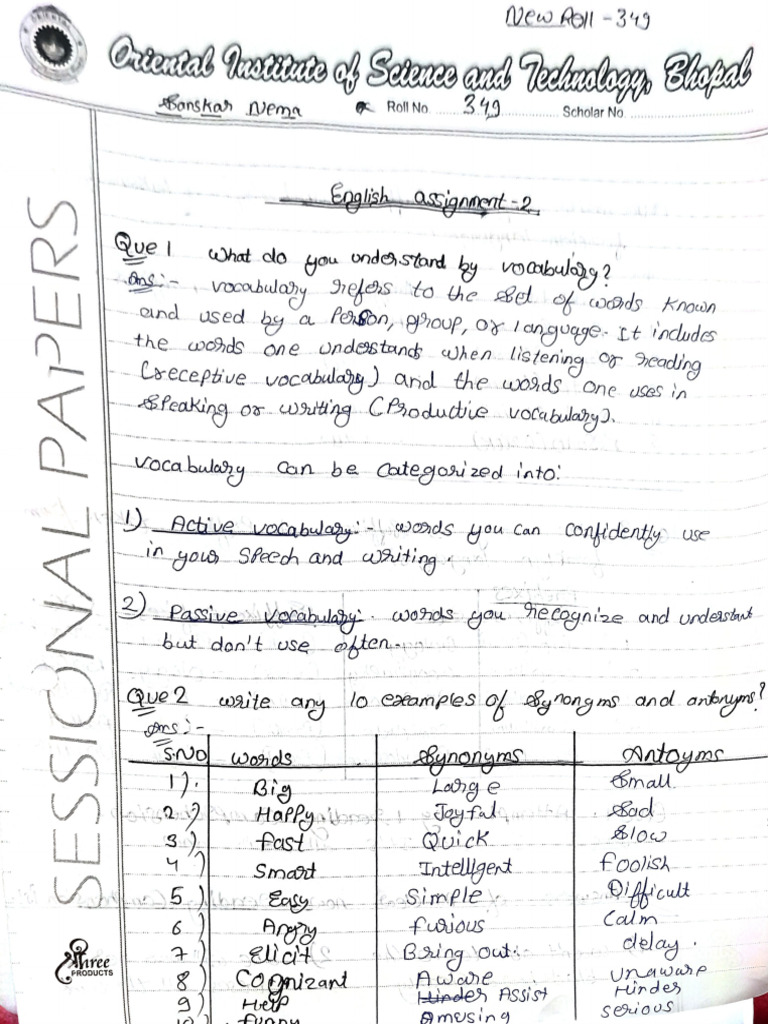 New Roll - 349
Oriental Institute of Science and Technology, Bhopal
Sanskar Nema Roll No. 349 Scholar No.
SESSIONAL PAPERS
English assignment-2
Que 1 What do you understand by vocabulary?
Ans:- vocabulary refers to the set of words known
and used by a Person, group, or language. It includes
the words one understands when listening or reading
(receptive vocabulary) and the words one uses in
speaking or writing (Productive vocabulary).
vocabulary can be categorized into:
1) Active vocabulary:- words you can confidently use
in your speech and writing.
2) Passive vocabulary:- words you recognize and understant
but don't use often.
Que 2 write any 10 examples of synongms and antonyms?
Ans:-
S.NO words Synonyms Antoyms
1). Big Large Small
2) Happy Joyful Sad
3) fast Quick Slow
4) Smart Intelligent foolish
5) Easy Simple Difficult
6) Angry furious Calm
7) Elicit Bring out. delay.
8) Cognizant Aware unaware
9) Help Hinder Assist Hinder
10) funny Amusing serious
Shree
PRODUCTS